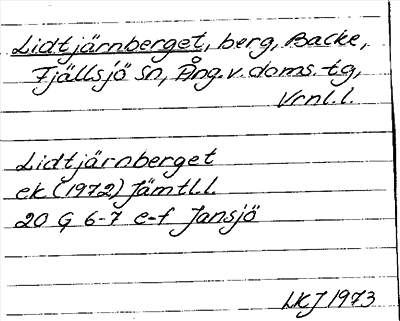 Lidtjärnberget, berg, Backe,
Fjällsjö sn, Ång. v. doms. tg,
Vrnl. l.
Lidtjärnberget
ek. (1972) Jämtl. l.
20 G 6-7 e-f Jansjö
LKJ 1973